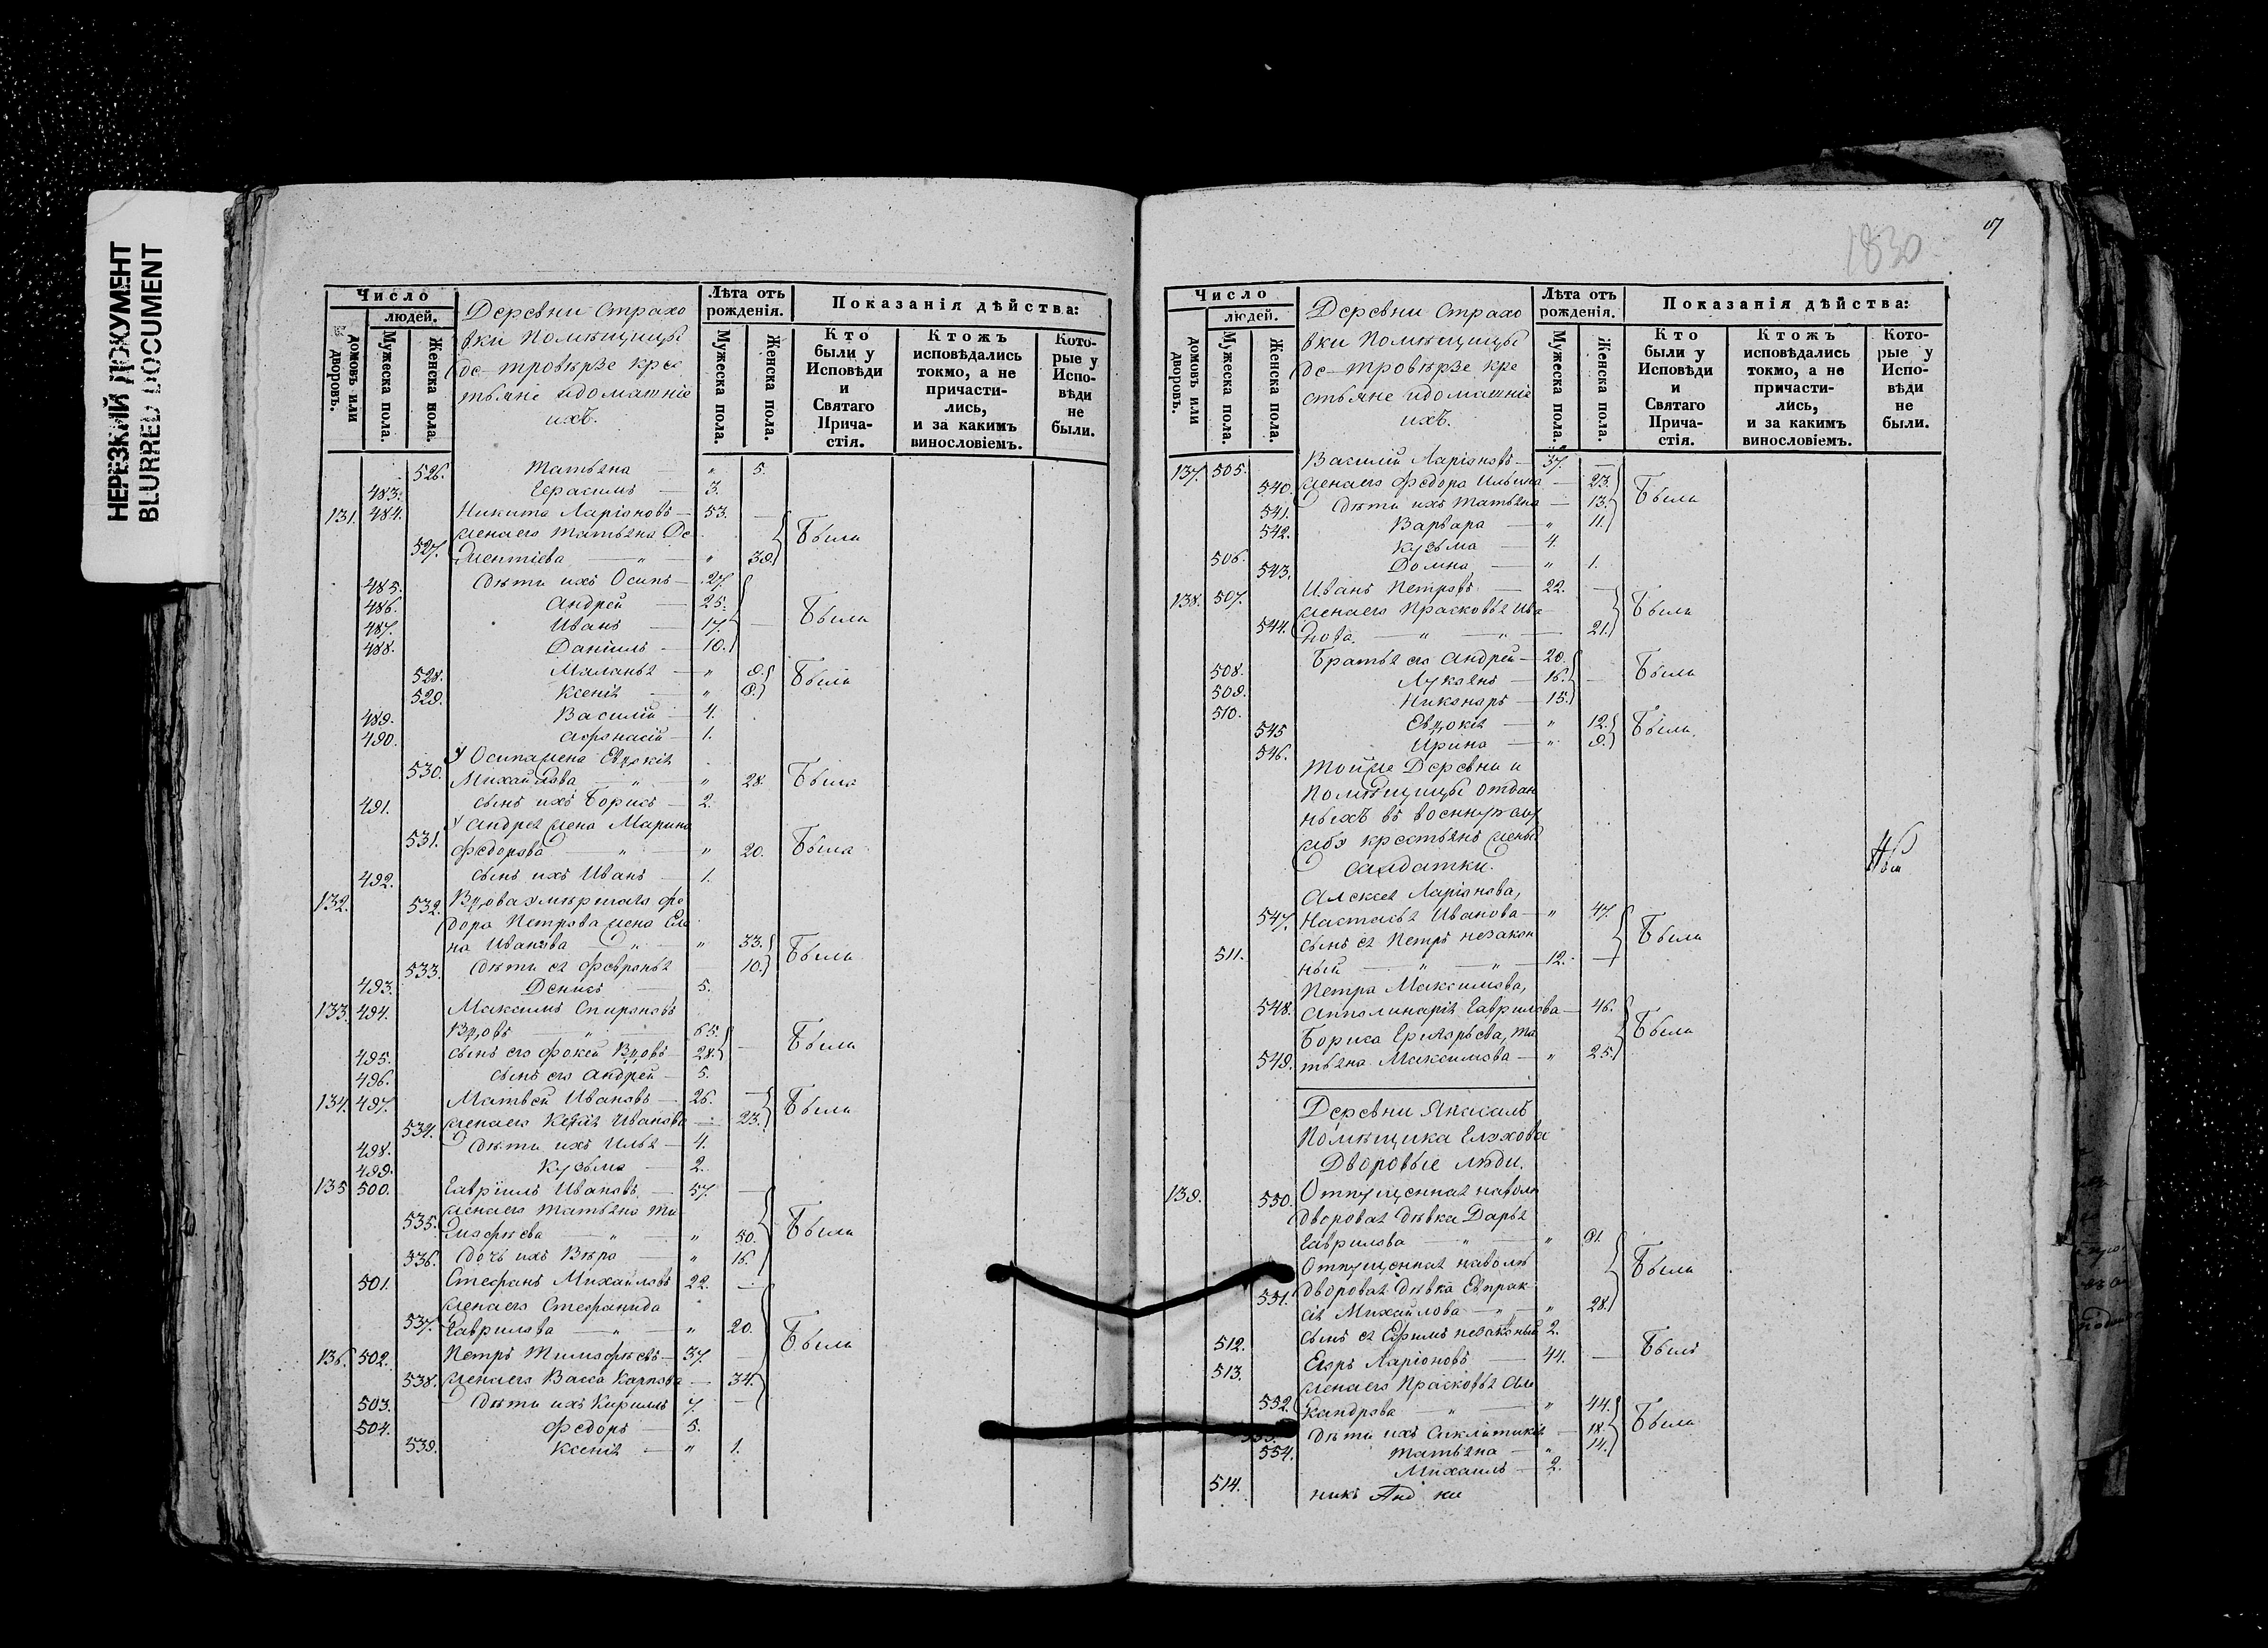 НЕРЕЗКИЙ ДОКУМЕНТ
BLURRED DOCUMENT
Число
людей.
домовъ или дворовъ.
Мужеска пола.
Женска пола.
Деревни Страхо
вки Помѣщицы
де-тровѣрзе кре
тьяне идомашніе
ихъ.
Лѣта отъ рожденія.
Мужеска пола.
Женска пола.
Показанія дѣйства:
Кто были у Исповѣди и Святаго Прича-стія.
Ктожъ исповѣдались токмо, а не причасти-лись, и за какимъ винословіемъ.
Кото-рые у Испо-вѣди не были.
526. Татьяна — " 5.
483. Герасимъ — 3.
131. 484. Никита Ларіоновъ — 53. —
жена его Татьяна Де
527. ментіева — " — " 39. Были
485. Дѣти ихъ Осипъ — 27.
486. Андрей — 25.
487. Иванъ — 17. — Были
488. Даніилъ — 10.
528. Маланья — " 9. Были
529. Ксенія — " 8.
489. Василій — 4.
490. Афонасій — 1.
У Осипа жена Евдокія
530. Михайлова — " — " 28. Была
491. сынъ ихъ Борисъ — 2.
У Андрея жена Марина
531. Федорова — " — " 20. Была
492. сынъ ихъ Иванъ — 1.
132. 532. Вдова умершаго Фе
дора Петрова жена Еле
на Иванова — " — " 33.
533. Дѣти ея Февронья 10. Были
493. Денисъ — 5.
133. 494. Максимъ Спироновъ
Вдовъ — " 65.
495. сынъ его Фокей Вдовъ — 28. — Были
496. сынъ его Андрей — 5.
134. 497. Матвей Ивановъ — 26. —
534. жена его Ксенія Иванова — 23. Были
498. Дѣти ихъ Илья — 4.
499. Кузьма — 2.
135 500. Гавріилъ Ивановъ — 57. —
жена его Татьяна Ти
535. мофѣева — " — " 50. Были
536. дочь ихъ Вѣра — " 16.
501. Стефанъ Михайловъ 22. —
жена его Стефанида
537. Гаврилова — " — " 20.
Были
136. 502. Петръ Тимофѣевъ — 37. —
538. жена его Васса Карпова — 34.
503. Дѣти ихъ Кирилъ 7. —
504. Федоръ — 5.
539. Ксенія — " 1.
1830
Число
людей.
домовъ или дворовъ.
Мужеска пола.
Женска пола.
Деревни Страхо
вки Помѣщицы
де-тровѣрзе кре
стьяне идомашніе
ихъ.
Лѣта отъ рожденія.
Мужеска пола.
Женска пола.
Показанія дѣйства:
Кто были у Исповѣди и Святаго Прича-стія.
Ктожъ исповѣдались токмо, а не причасти-лись, и за какимъ винословіемъ.
Кото-рые у Испо-вѣди не были.
137. 505. Василій Ларіоновъ — 37. —
540. жена его Федора Ильина — 23.
541. Дѣти ихъ Татьяна — 13. Были
542. Варвара — " 11.
506. Кузьма — 4.
543. Домна — " 1.
138. 507. Иванъ Петровъ — 22. —
жена его Прасковья Ива
544. нова. — " — " — 21. Были
508. Братья его Андрей — 20.
509. Лукьянъ — 16. — Были
510. Никаноръ — 15.
545 Евдокія — " 12. Были.
546. Ирина — " 9.
Тойже Деревни и
Помѣщицы отдан
ныхъ въ военную слу
жбу крестьянъ жены
салдатки.
Алексея Ларіонова,
547. Настасья Иванова — " 47.
сынъ ея Петръ незакон
511. ный — " — " — 12. — Были
Петра Максимова,
548. Апполинарія Гаврилова — 46.
Бориса Григорьева, Та
549. тьяна Максимова — " 25. Были
Деревни
Помѣщика Елахова
Дворовые люди.
139. 550. Отпущенная наволю
дворовая дѣвка Дарья
Гаврилова — " — "
Отпущенная наволю
551. дворовая дѣвка Евпрак
сія Михайлова — " — " 28. Были
512. сынъ ея Ефимъ незаконый 2.
513. Егоръ Ларіоновъ — 44. — Былъ
жена его Прасковья Але
552. ксандрова — " — " 44.
553. Дѣти ихъ — 18. Были
554. Татьяна — " 14.
514. Михаилъ — 2.